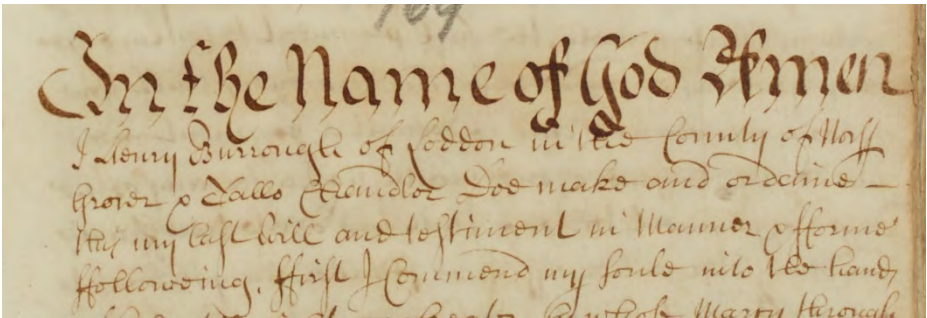 169
In the Name of God Amen
I Henry Burrough of Loddon in the County of Norff
Grocer & Tallo Chandlor Doe make and ordaine
this my last will and testiment in Manner & fforme
ffolloweing. ffirst I Commend my soule into the hands
through